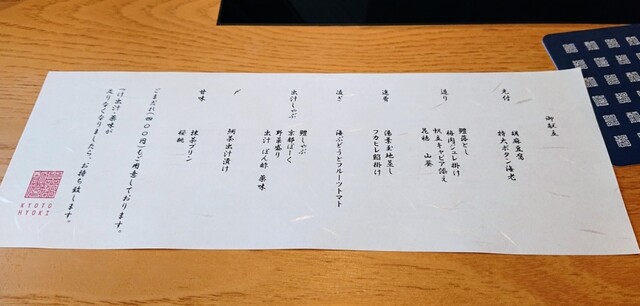 御献立
先付
胡麻豆腐
特大ボタン海老
造り
鱧落とし
梅肉ジュレ掛け
帆立キャビア添え
花穂 山葵
進肴
湯葉玉地蒸し
フカヒレ餡掛け
凌ぎ
海ぶどうとフルーツトマト
出汁しゃぶ
鱧しゃぶ
京都ぽーく
野菜盛り
出汁 ぽん酢 薬味
〆
鯛茶出汁漬け
甘味
抹茶プリン
桜桃
ごまだれ(四〇〇円)もご用意しております。
つけ出汁・薬味が
足りなくなりましたら、お持ち致します。
KYOTO
HYOKI